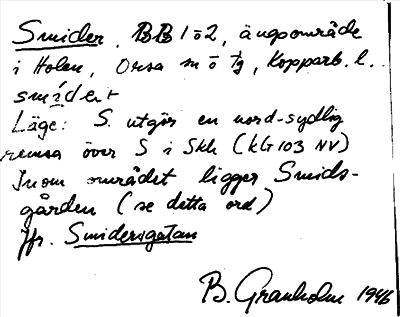 Smider, BB 1 o 2, ängområde
i Holen, Orsa sn o tg, Kopparb. l.
smídeṛ
Läge: S. utgör en nord-sydlig
remsa över S i Skh (kG 103 NV)
Inom området ligger Smids-
gården (se detta ord)
Jfr. Smidersgatan
B. Granholm 1946